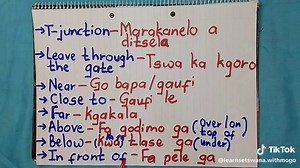 →T-junction-Marakanelo a
ditsela
→Leave through - Tswa ka kgoro
the gate
→Near - Go bapa/gaufi
→Close to - Gaufi le
→Far - Kgakala
→Above - Fa godimo ga (over/on/
top of
→Below - (kwa) tlase ga (under)
→In front of - Fa pele ga
TikTok
@learnsetswana.withmogo